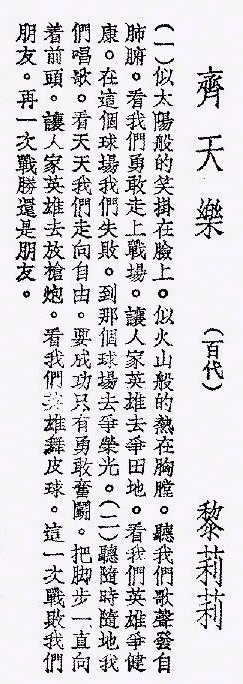 齊天樂
（百代）
黎莉莉
（一）似太陽般的笑掛在臉上。似火山般的熱在胸膛。聽我們歌聲發自
肺腑。看我們勇敢走上戰場。讓人家英雄去爭田地。看我們英雄爭健
康。在這個球場我們失敗。到那個球場去爭榮光。（二）聽隨時隨地我
們唱歌。看天天我們走向自由。要成功只有勇敢奮鬭。把脚步一直向
着前頭。讓人家英雄去放槍炮。看我們英雄舞皮球。這一次戰敗我們
朋友。再一次戰勝還是朋友。